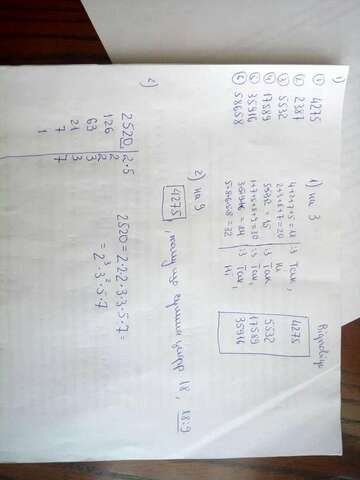 1)
① 4275
② 2387
③ 5532
④ 17589
⑤ 35916
⑥ 58658
1) на 3
4+2+7+5=18 :3 Так,
Ні
5532 = 15 :3 Так
1+7+5+8+9=30 :3 Так,
:3 Так,
5+8+6+5+8=32 Ні
Відповідь
4275
5532
17589
35916
2) на 9
4275, тому що цифр 18, 18:9
2520 2·5
126 2
63 3
21 3
7 7
1
2520=2·2·2·3·3·5·7=
=2³·3²·5·7